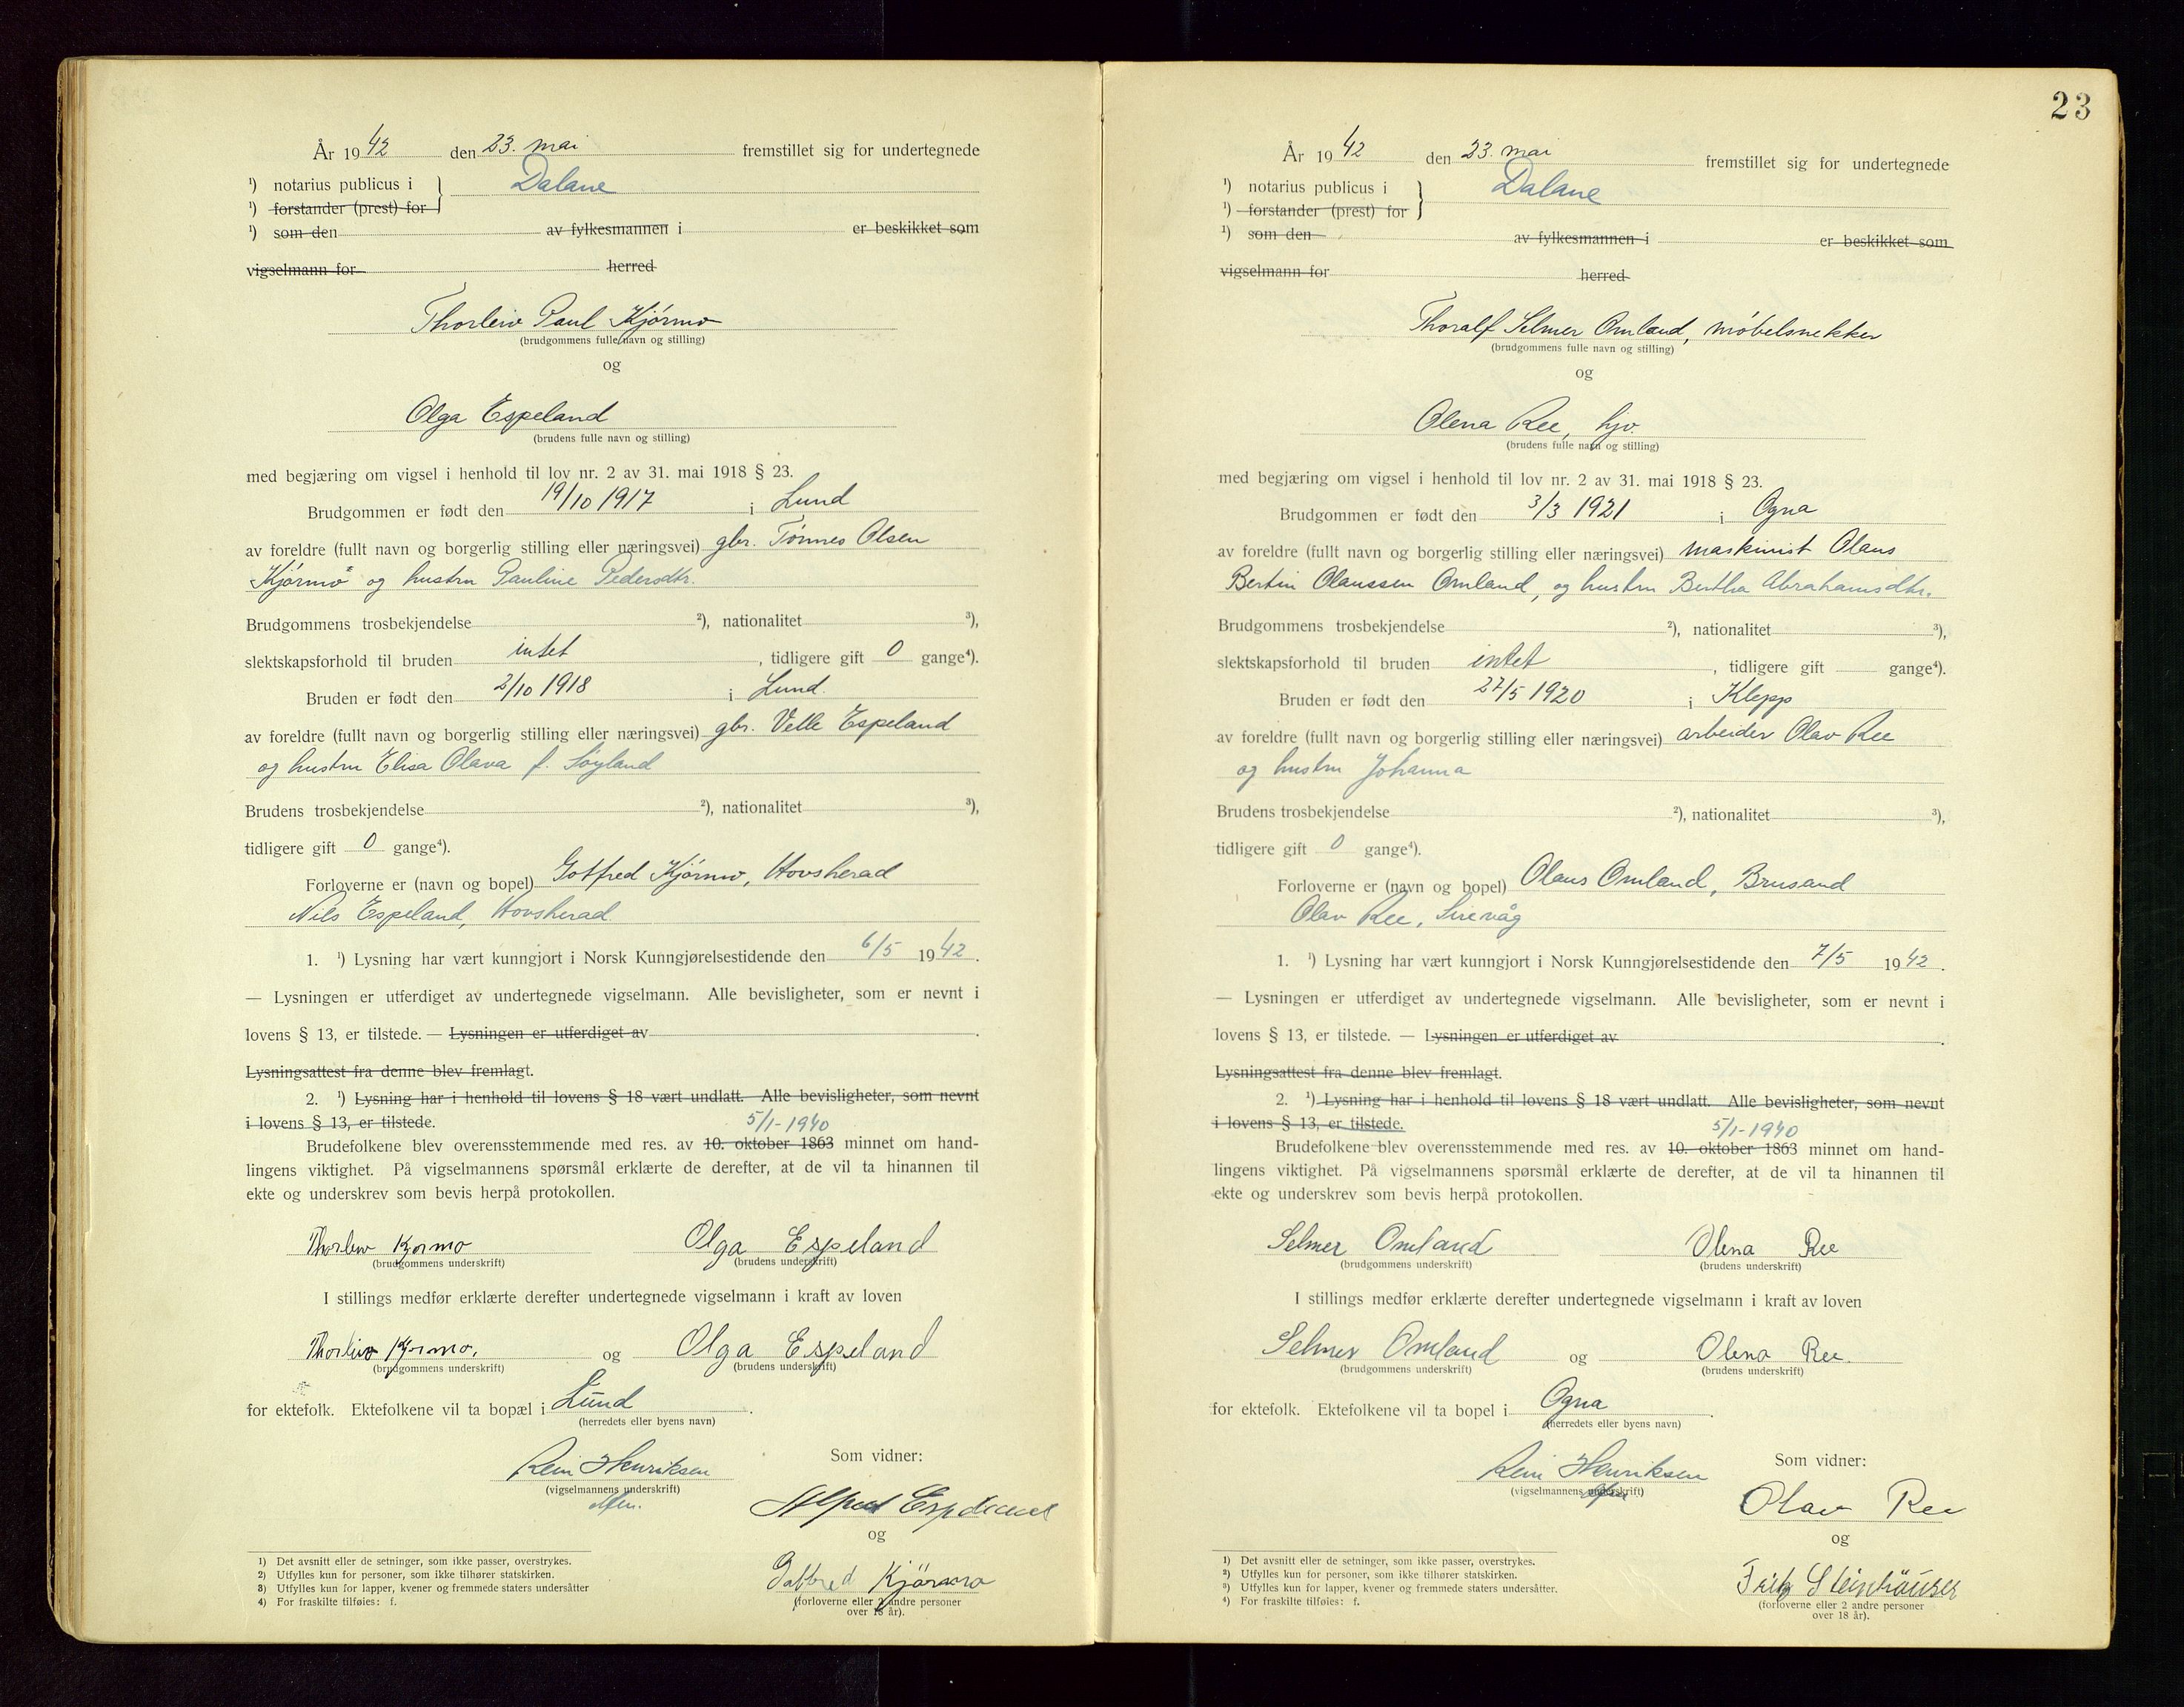 År 1942 den 23. mai fremstillet sig for undertegnede
¹) notarius publicus i } Dalane
¹) forstander (prest) for
¹) som den av fylkesmannen i er beskikket som
vigselmann for herred
Thorleiv Paul Kjørmo
(brudgommens fulle navn og stilling)
og
Olga Espeland
(brudens fulle navn og stilling)
med begjæring om vigsel i henhold til lov nr. 2 av 31. mai 1918 § 23.
Brudgommen er født den 19/10 1917 i Lund
av foreldre (fullt navn og borgerlig stilling eller næringsvei) gbr. Tønnes Olsen
"Kjørmo" og hustru Pauline Pedersdtr.
Brudgommens trosbekjendelse ²), nationalitet ³),
slektskapsforhold til bruden intet, tidligere gift 0 gange⁴).
Bruden er født den 2/10 1918 i Lund.
av foreldre (fullt navn og borgerlig stilling eller næringsvei) gbr. Velle Espeland
og hustru Elisa Olava f. Søyland
Brudens trosbekjendelse ²), nationalitet ³),
tidligere gift 0 gange⁴).
Forloverne er (navn og bopel) Gotfred Kjørmo, Hovsherad
Nils Espeland, Hovsherad.
1. ¹) Lysning har vært kunngjort i Norsk Kunngjørelsestidende den 6/5 1942.
— Lysningen er utferdiget av undertegnede vigselmann. Alle bevisligheter, som er nevnt i
lovens § 13, er tilstede. — Lysningen er utferdiget av .
Lysningsattest fra denne blev fremlagt.
2. ¹) Lysning har i henhold til lovens § 18 vært undlatt. Alle bevisligheter, som nevnt
i lovens § 13, er tilstede.
5/1-1940
Brudefolkene blev overensstemmende med res. av 10. oktober 1863 minnet om hand-
lingens viktighet. På vigselmannens spørsmål erklærte de derefter, at de vil ta hinannen til
ekte og underskrev som bevis herpå protokollen.
Thorleiv Kjørmo Olga Espeland
(brudgommens underskrift) (brudens underskrift)
I stillings medfør erklærte derefter undertegnede vigselmann i kraft av loven
Thorleiv Kjørmo, og Olga Espeland
(brudgommens underskrift) (brudens underskrift)
for ektefolk. Ektefolkene vil ta bopæl i Lund.
(herredets eller byens navn)
Rein Henriksen
(vigselmannens underskrift)
Som vidner:
Espeland
og
Gotfred Kjörmo
(forloverne eller 2 andre personer
over 18 år).
1) Det avsnitt eller de setninger, som ikke passer, overstrykes.
2) Utfylles kun for personer, som ikke tilhører statskirken.
3) Utfylles kun for lapper, kvener og fremmede staters undersåtter
4) For fraskilte tilføies: f.
23
År 1942 den 23. mai fremstillet sig for undertegnede
¹) notarius publicus i } Dalane
¹) forstander (prest) for
¹) som den av fylkesmannen i er beskikket som
vigselmann for herred
Thoralf Selmer Omland, møbelsnekker
(brudgommens fulle navn og stilling)
og
Olena Ree, hjv.
(brudens fulle navn og stilling)
med begjæring om vigsel i henhold til lov nr. 2 av 31. mai 1918 § 23.
Brudgommen er født den 3/3 1921 i Ogna
av foreldre (fullt navn og borgerlig stilling eller næringsvei) maskinist Olaus
Bertin Olaussen Omland, og hustru Bertha Abrahamsdtr.
Brudgommens trosbekjendelse ²), nationalitet ³),
slektskapsforhold til bruden intet, tidligere gift gange⁴).
Bruden er født den 27/5 1920 i Klepp
av foreldre (fullt navn og borgerlig stilling eller næringsvei) arbeider Olav Ree
og hustru Johanna
Brudens trosbekjendelse ²), nationalitet ³),
tidligere gift 0 gange⁴).
Forloverne er (navn og bopel) Olaus Omland, Brusand
Olav Ree, Sirevåg
1. ¹) Lysning har vært kunngjort i Norsk Kunngjørelsestidende den 7/5 1942.
— Lysningen er utferdiget av undertegnede vigselmann. Alle bevisligheter, som er nevnt i
lovens § 13, er tilstede. — Lysningen er utferdiget av .
Lysningsattest fra denne blev fremlagt.
2. ¹) Lysning har i henhold til lovens § 18 vært undlatt. Alle bevisligheter, som nevnt
i lovens § 13, er tilstede.
5/1-1940
Brudefolkene blev overensstemmende med res. av 10. oktober 1863 minnet om hand-
lingens viktighet. På vigselmannens spørsmål erklærte de derefter, at de vil ta hinannen til
ekte og underskrev som bevis herpå protokollen.
Selmer Omland Olena Ree
(brudgommens underskrift) (brudens underskrift)
I stillings medfør erklærte derefter undertegnede vigselmann i kraft av loven
Selmer Omland og Olena Ree.
(brudgommens underskrift) (brudens underskrift)
for ektefolk. Ektefolkene vil ta bopel i Ogna.
(herredets eller byens navn)
Rein Henriksen
(vigselmannens underskrift)
Som vidner:
Olav Ree
og
Fritz Steinhäuser
(forloverne eller 2 andre personer
over 18 år).
1) Det avsnitt eller de setninger, som ikke passer, overstrykes.
2) Utfylles kun for personer, som ikke tilhører statskirken.
3) Utfylles kun for lapper, kvener og fremmede staters undersåtter.
4) For fraskilte tilføies: f.